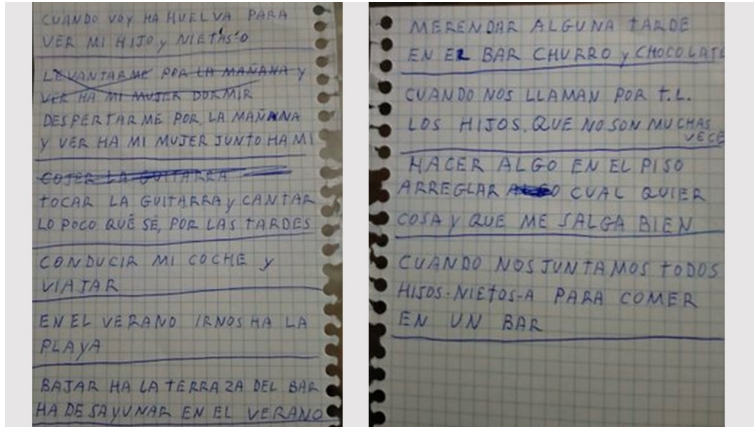 CUANDO VOY HA HUELVA PARA
VER MI HIJO y NIETAS-O
LEVANTARME POR LA MAÑANA y
VER HA MI MUJER DORMIR
DESPERTARME POR LA MAÑANA
y VER HA MI MUJER JUNTO HA MI
COJER LA GUITARRA
TOCAR LA GUITARRA y CANTAR
LO POCO QUÉ SE, POR LAS TARDES
CONDUCIR MI COCHE y
VIAJAR
EN EL VERANO IRNOS HA LA
PLAyA
BAJAR HA LA TERRAZA DEL BAR
HA DESAYUNAR EN EL VERANO
MERENDAR ALGUNA TARDE
EN EL BAR CHURRO y CHOCOLATE
CUANDO NOS LLAMAN POR T.L.
LOS HIJOS. QUE NO SON MUCHAS
VECE
HACER ALGO EN EL PISO
ARREGLAR CUAL QUIER
COSA y QUE ME SALGA BIEN
CUANDO NOS JUNTAMOS TODOS
HISOS-NIETOS-A PARA COMER
EN UN BAR